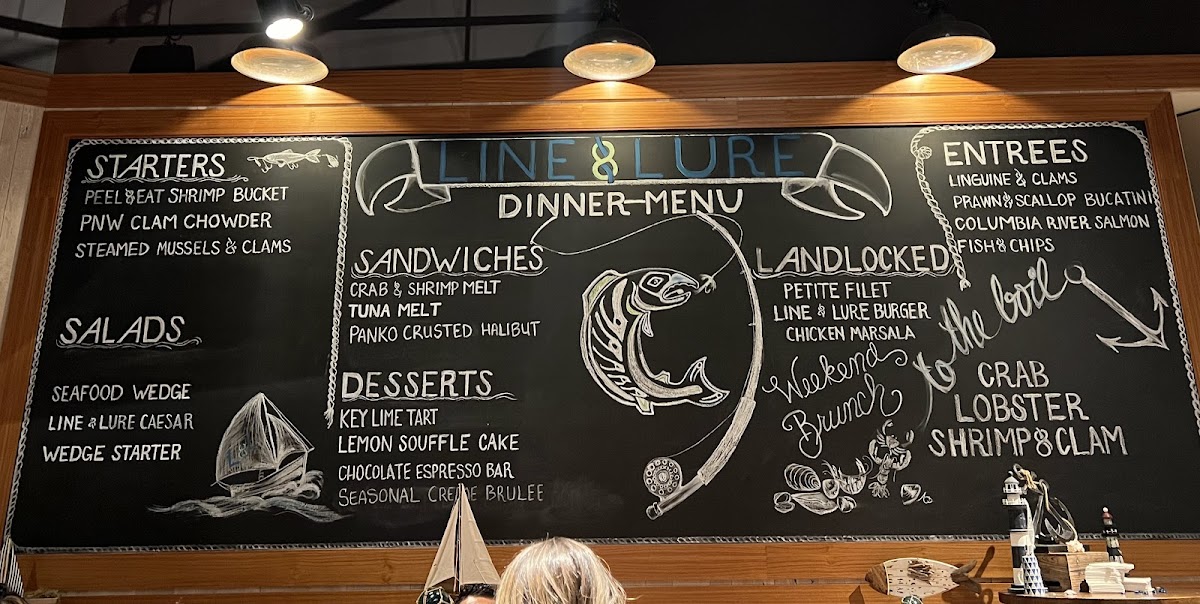 LINE & LURE
DINNER MENU
STARTERS
PEEL & EAT SHRIMP BUCKET
PNW CLAM CHOWDER
STEAMED MUSSELS & CLAMS
SALADS
SEAFOOD WEDGE
LINE & LURE CAESAR
WEDGE STARTER
SANDWICHES
CRAB & SHRIMP MELT
TUNA MELT
PANKO CRUSTED HALIBUT
DESSERTS
KEY LIME TART
LEMON SOUFFLE CAKE
CHOCOLATE ESPRESSO BAR
SEASONAL CREME BRULEE
LANDLOCKED
PETITE FILET
LINE & LURE BURGER
CHICKEN MARSALA
Weekend
Brunch
ENTREES
LINGUINE & CLAMS
PRAWN & SCALLOP BUCATINI
COLUMBIA RIVER SALMON
FISH & CHIPS
to the boil
CRAB
LOBSTER
SHRIMP & CLAM